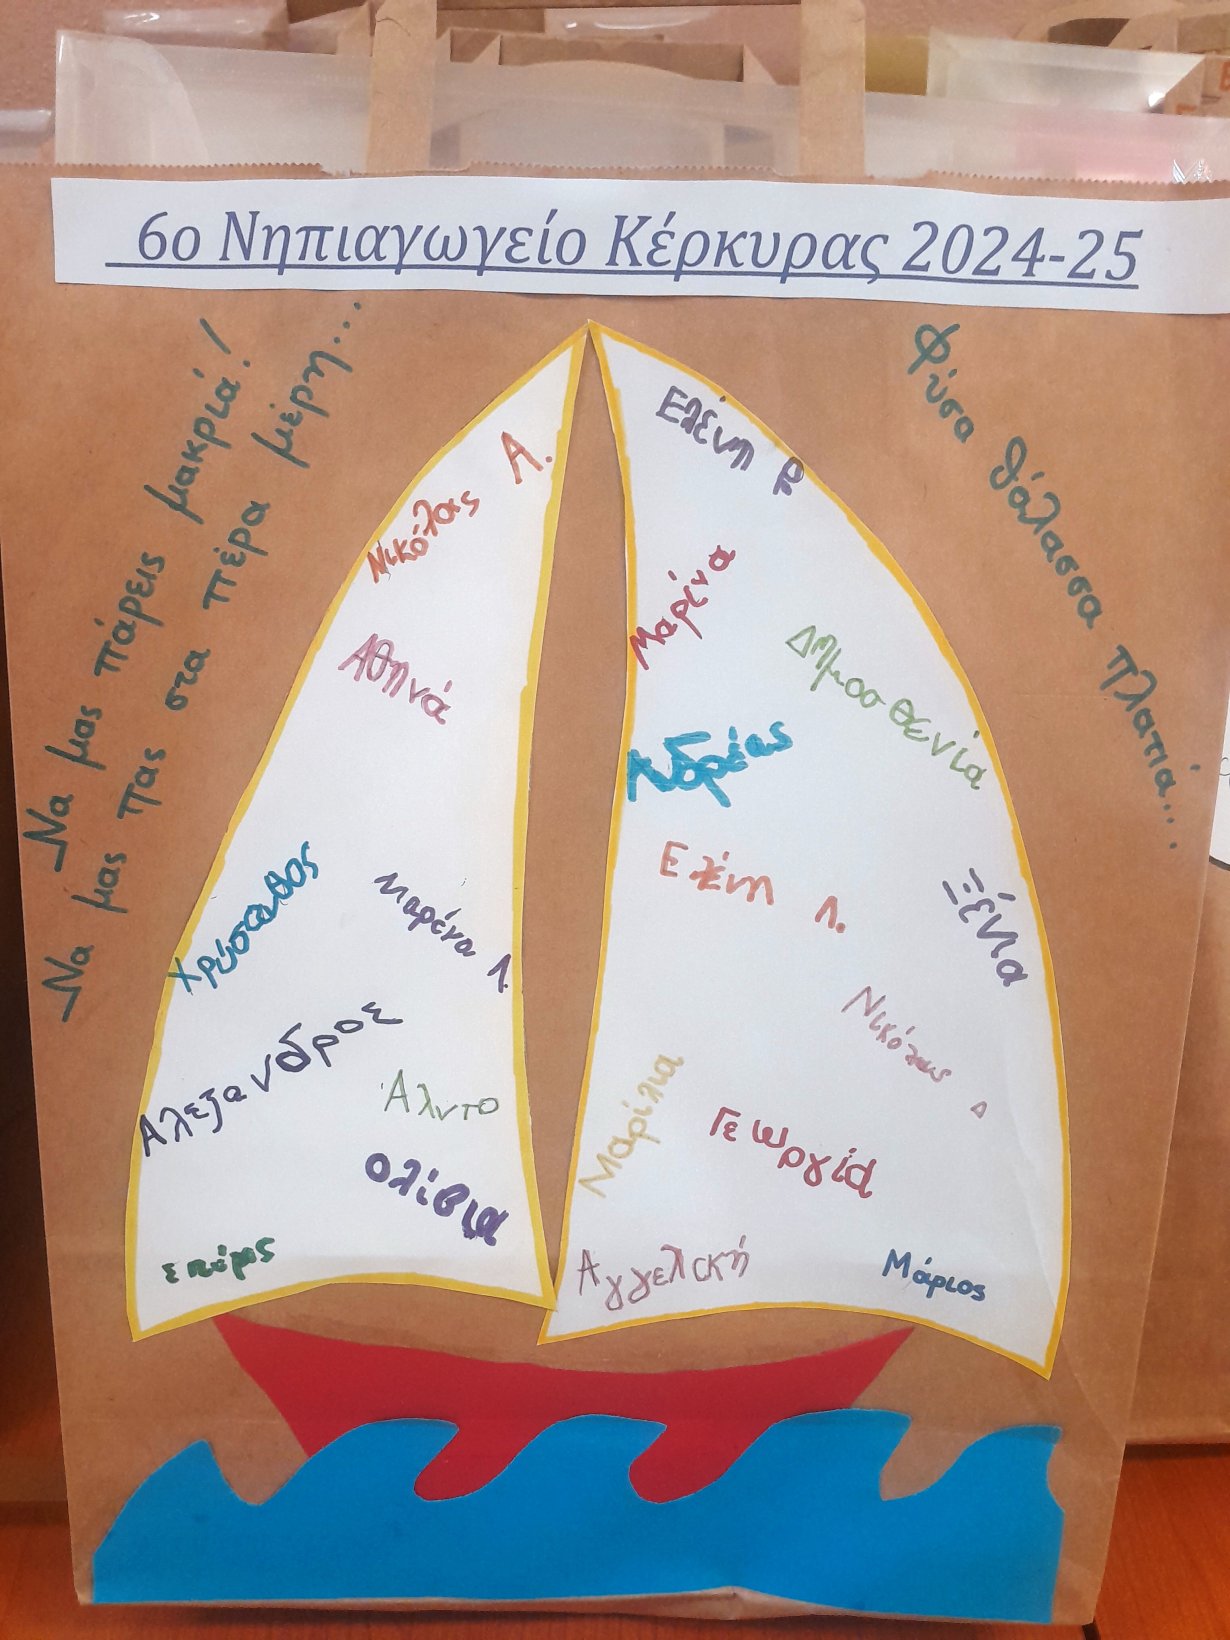 6ο Νηπιαγωγείο Κέρκυρας 2024-25
Να μας πάρεις μακριά!
Να μας πας στα πέρα μέρη...
Φύσα θάλασσα πλατιά...
Νικόλας Α.
Αθηνά
Χρύσανθος
Μαρένα Λ.
Αλεξανδρος
Αλντο
Ολίβια
Σπύρος
Ελένη
Μαρένα
Δημοσθενία
Ανδρέας
Ελένη Λ.
Ξένια
Νικόλας Δ
Μαρίλια
Γεωργία
Αγγελική
Μάριος